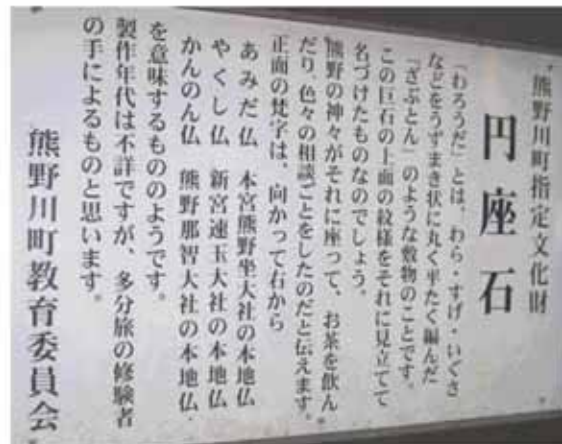 熊野川町指定文化財
円座石
「わろうだ」とは、わら・すげ・いぐさ
などをうずまき状に丸く平たく編んだ
『ざぶとん』のような敷物のことです。
この巨石の上面の紋様をそれに見立てて
名づけたものなのでしょう。
熊野の神々がそれに座って、お茶を飲ん
だり、色々の相談ごとをしたのだと伝えます。
正面の梵字は、向かって右から
あみだ仏 本宮熊野坐大社の本地仏
やくし仏 新宮速玉大社の本地仏
かんのん仏 熊野那智大社の本地仏
を意味するもののようです。
製作年代は不詳ですが、多分旅の修験者
の手によるものと思います。
熊野川町教育委員会